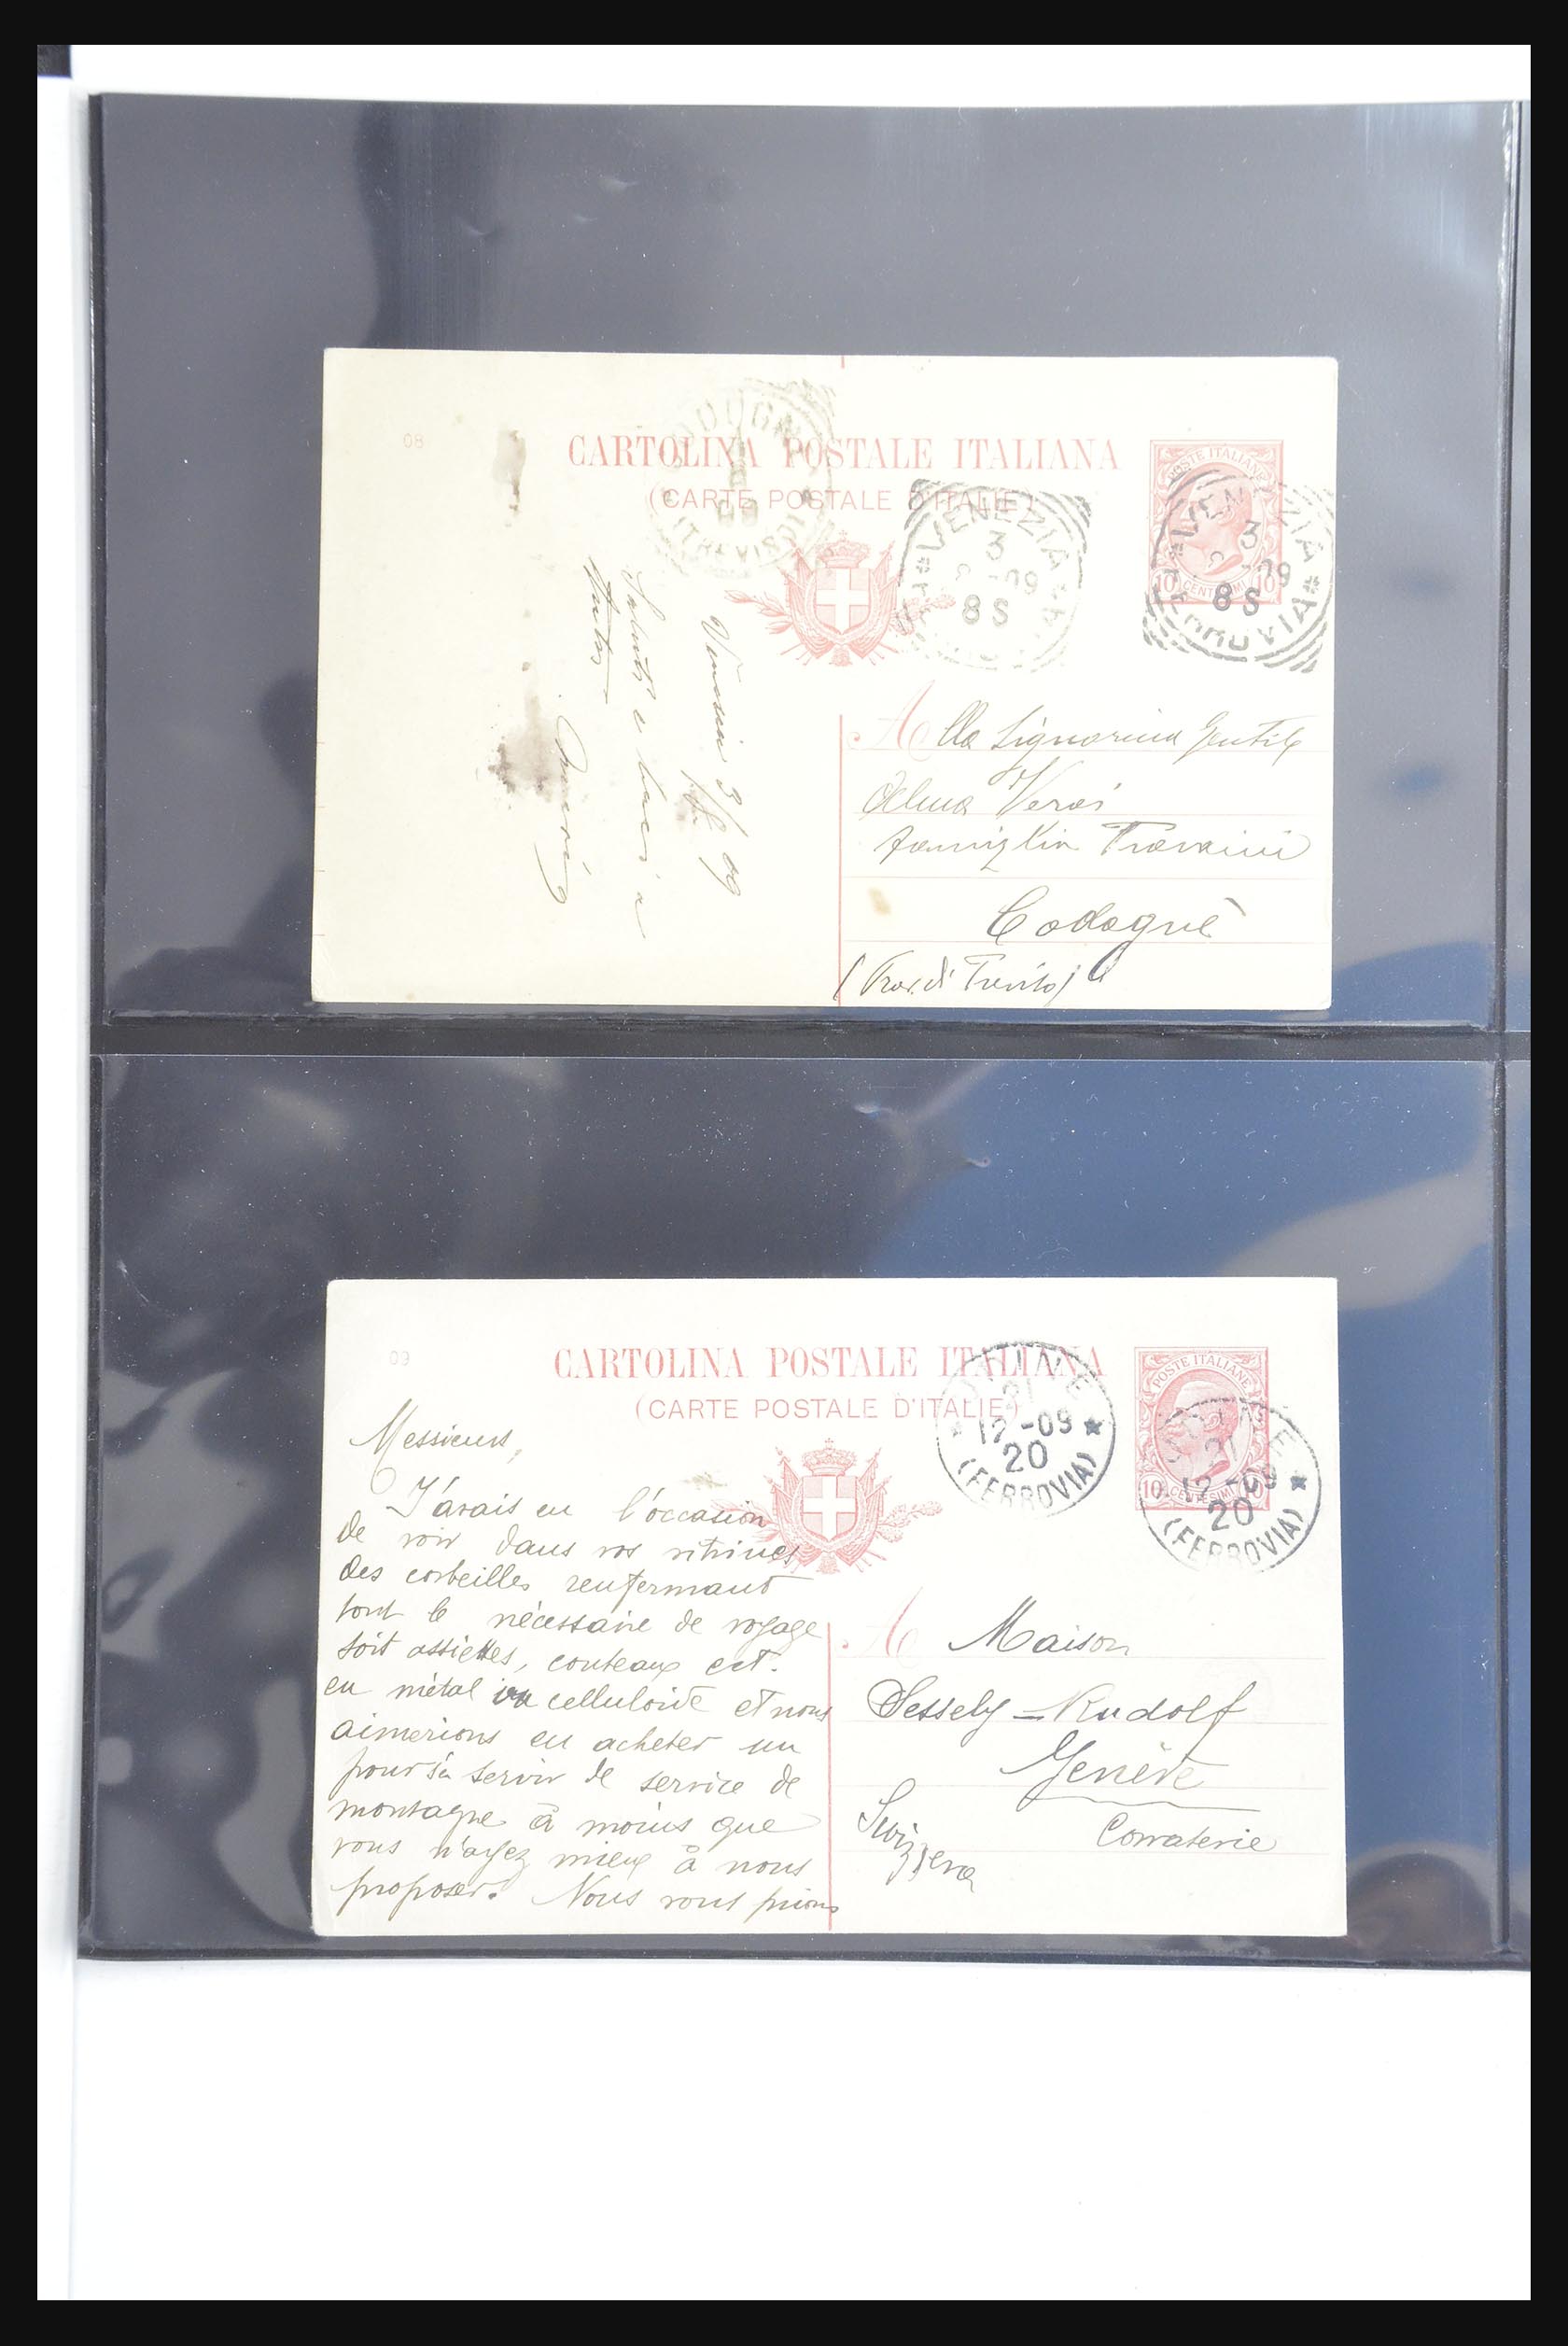 08
CARTOLINA POSTALE ITALIANA
(CARTE POSTALE D'ITALIE)
POSTE ITALIANE
10 CENTESIMI 10
VENEZIA
3
8 - 09
8 S
FERROVIA
VENEZIA
3
8 - 09
8 S
FERROVIA
(TREVISO)
Venezia 3/8 09
Saluti e baci a
tutti
Alla Signorina Gentile
Alma
famiglia Travaini
Codognè
(Prov. di Treviso)
09
CARTOLINA POSTALE ITALIANA
(CARTE POSTALE D'ITALIE)
POSTE ITALIANE
10 CENTESIMI
UDINE
21
12 -09
20
(FERROVIA)
UDINE
21
12 -09
20
(FERROVIA)
Messieurs,
J'avais eu l'occasion
de voir dans vos vitrines
des corbeilles renfermant
tout le nécessaire de voyage
soit assiettes, couteaux ect.
en métal ou celluloide et nous
aimerions en acheter un
pour s'en servir de service de
montagne à moins que
vous n'ayez mieux à nous
proposer. Nous vous prions
A Maison
Sessely = Rudolf
Genève
Corraterie
Svizzera